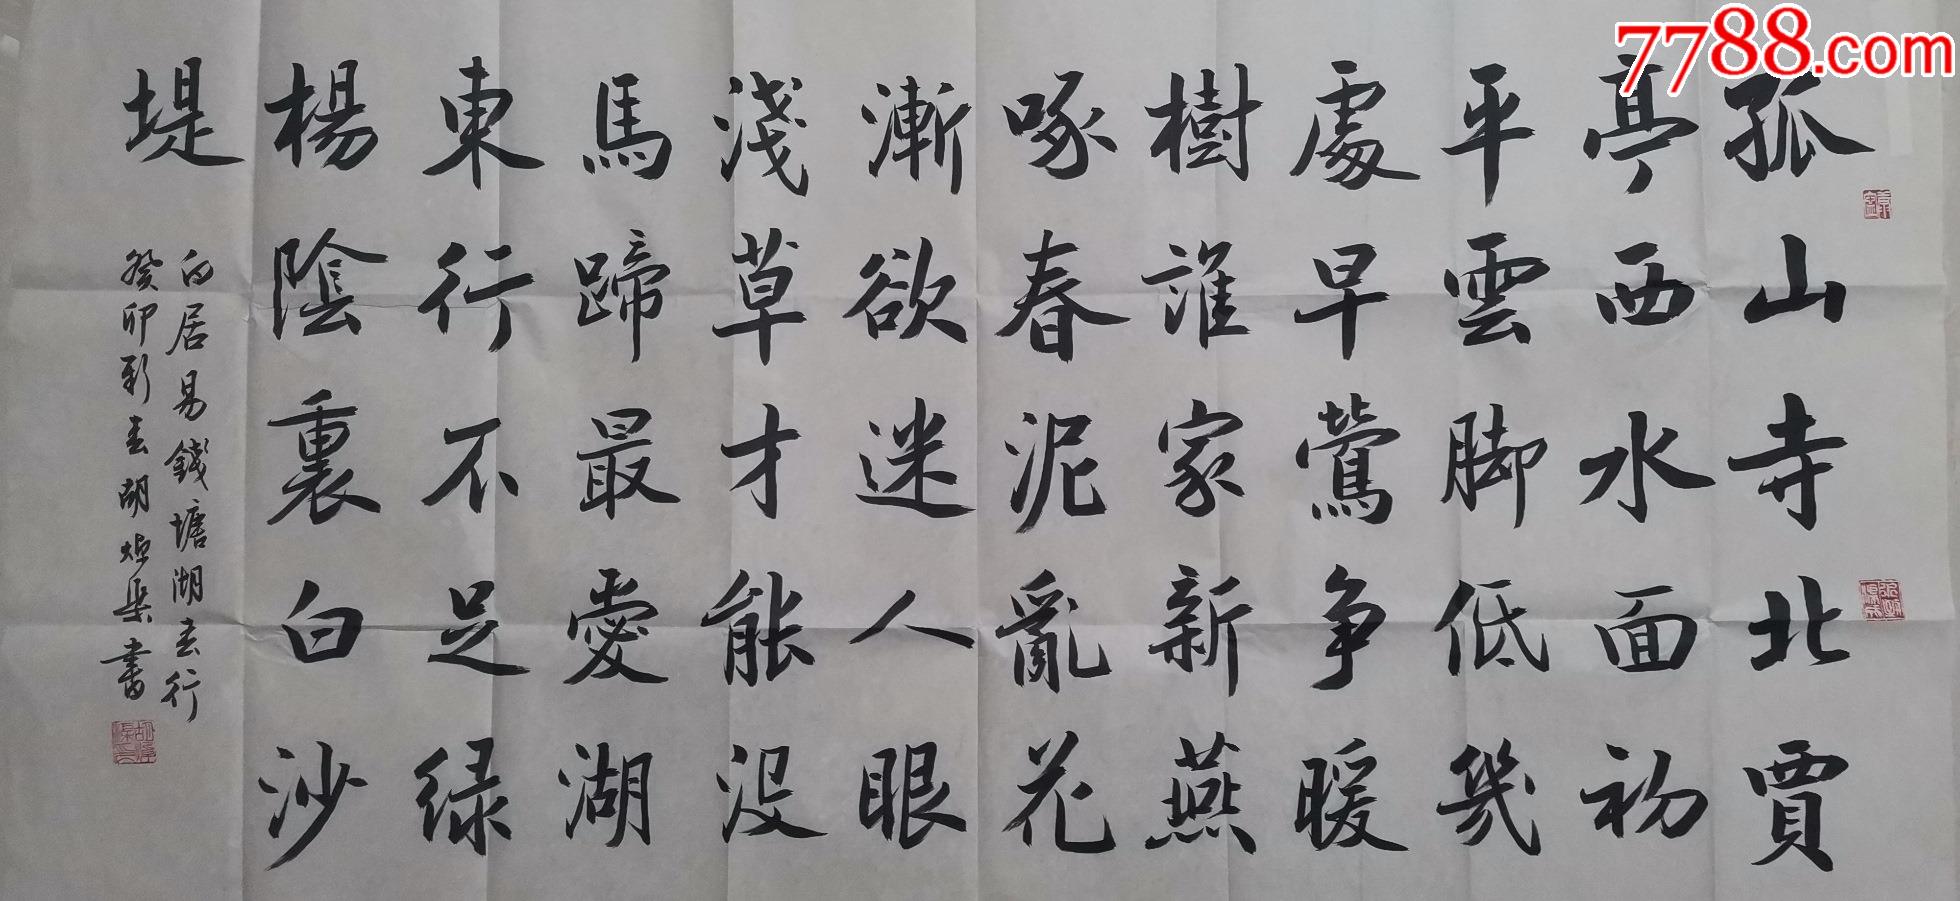 7788.com
孤山寺北賈
亭西水面初
平雲脚低幾
處早鶯争暖
樹誰家新燕
啄春泥亂花
漸欲迷人眼
淺草才能没
馬蹄最愛湖
東行不足緑
楊陰裏白沙
堤
白居易錢塘湖春行
癸卯新春胡書